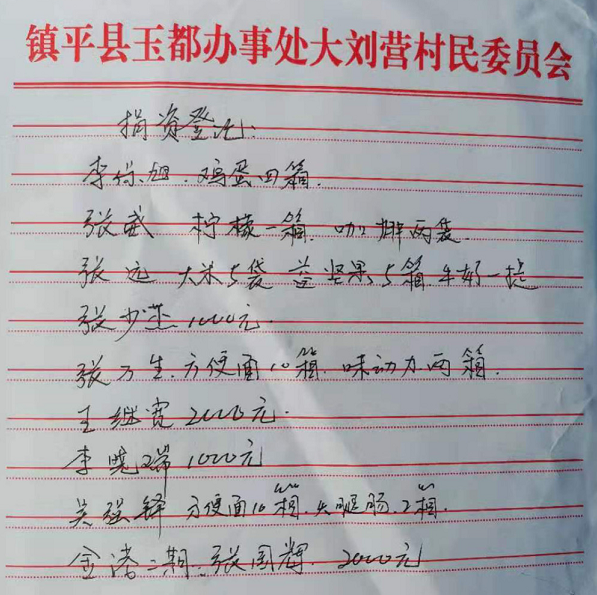 镇平县玉都办事处大刘营村民委员会
捐资登记:
李保旭.鸡蛋四箱.
张威 柠檬一箱. 排两袋.
张远 大米5袋 坚果5箱 牛奶一提
张少 1000元.
张万生.方便面10箱.味动力两箱.
王继宽2000元.
李晓瑞1000元
吴强锋 方便面10相.火腿肠.2相.
金港二期.张国辉.2000元